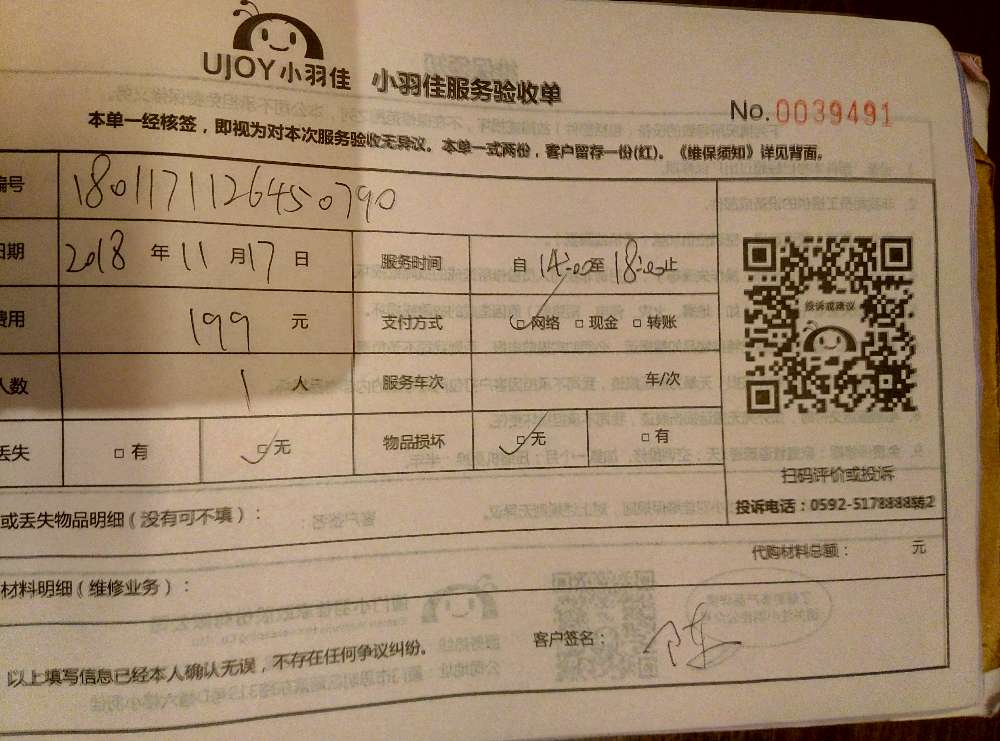 UJOY小羽佳 小羽佳服务验收单
No.0039491
本单一经核签，即视为对本次服务验收无异议。本单一式两份，客户留存一份(红)。《维保须知》详见背面。
编号 1801171126450790
日期 2018 年 11 月 17 日 服务时间 自 14:00 至 18:00 止
费用 199 元 支付方式 □网络 □现金 □转账
人数 1 人 服务车次 车/次
丢失 □有 □无 物品损坏 □无 □有
投诉或建议
扫码评价或投诉
投诉电话：0592-5178888转2
或丢失物品明细(没有可不填)：
代购材料总额： 元
材料明细(维修业务)：
以上填写信息已经本人确认无误，不存在任何争议纠纷。
客户签名：